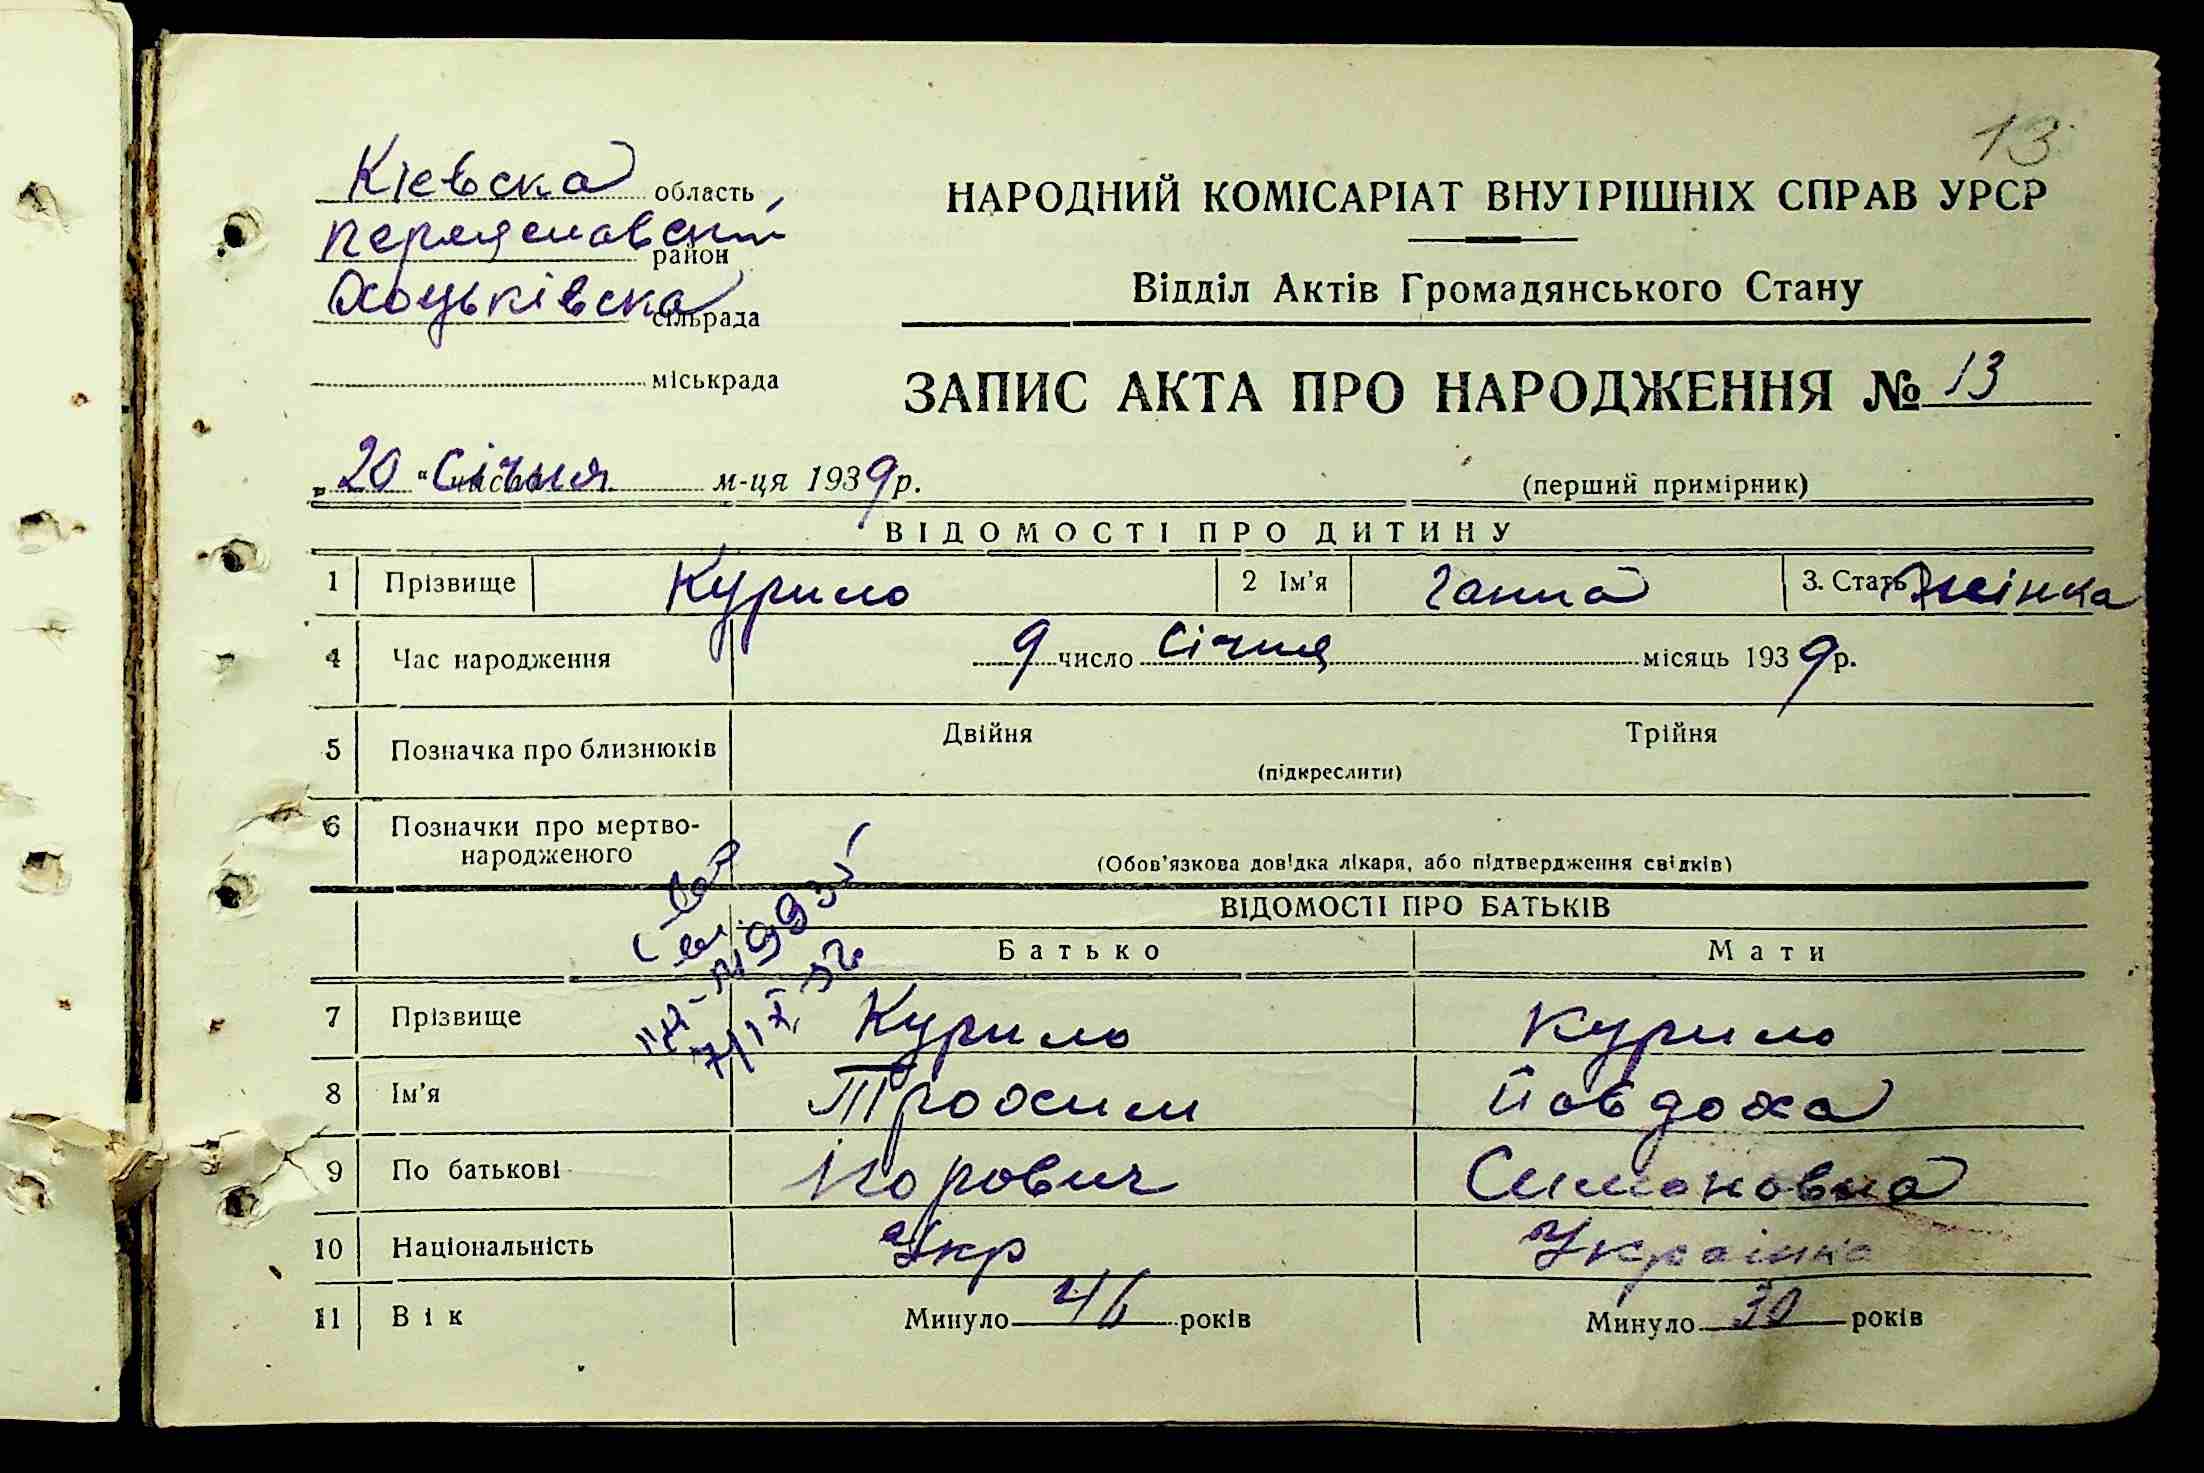 13
Кієвска область
Переяславский район
Хоцьківска сільрада
міськрада
НАРОДНИЙ КОМІСАРІАТ ВНУТРІШНІХ СПРАВ УРСР
Відділ Актів Громадянського Стану
ЗАПИС АКТА ПРО НАРОДЖЕННЯ № 13
„20“ Січня м-ця 1939 р.
(перший примірник)
ВІДОМОСТІ ПРО ДИТИНУ
1 Прізвище Курило 2 Ім'я Ганна 3. Стать Жінка
4 Час народження 9 число Січня місяць 1939 р.
5 Позначка про близнюків Двійня Трійня
(підкреслити)
6 Позначки про мертво-
народженого
(Обов'язкова довідка лікаря, або підтвердження свідків)
ВІДОМОСТІ ПРО БАТЬКІВ
Батько Мати
7 Прізвище Курило Курило
8 Ім'я Трохим Йовдоха
9 По батькові Симоновна
10 Національність Укр Українка
11 Вік Минуло 46 років Минуло 30 років